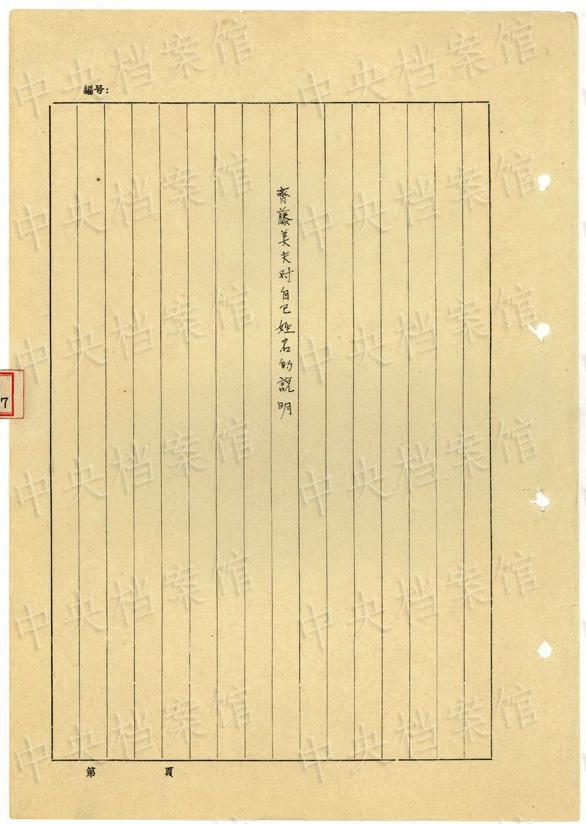 編号:
齊藤美夫对自己姓名的説明
7
第 頁
中央档案馆